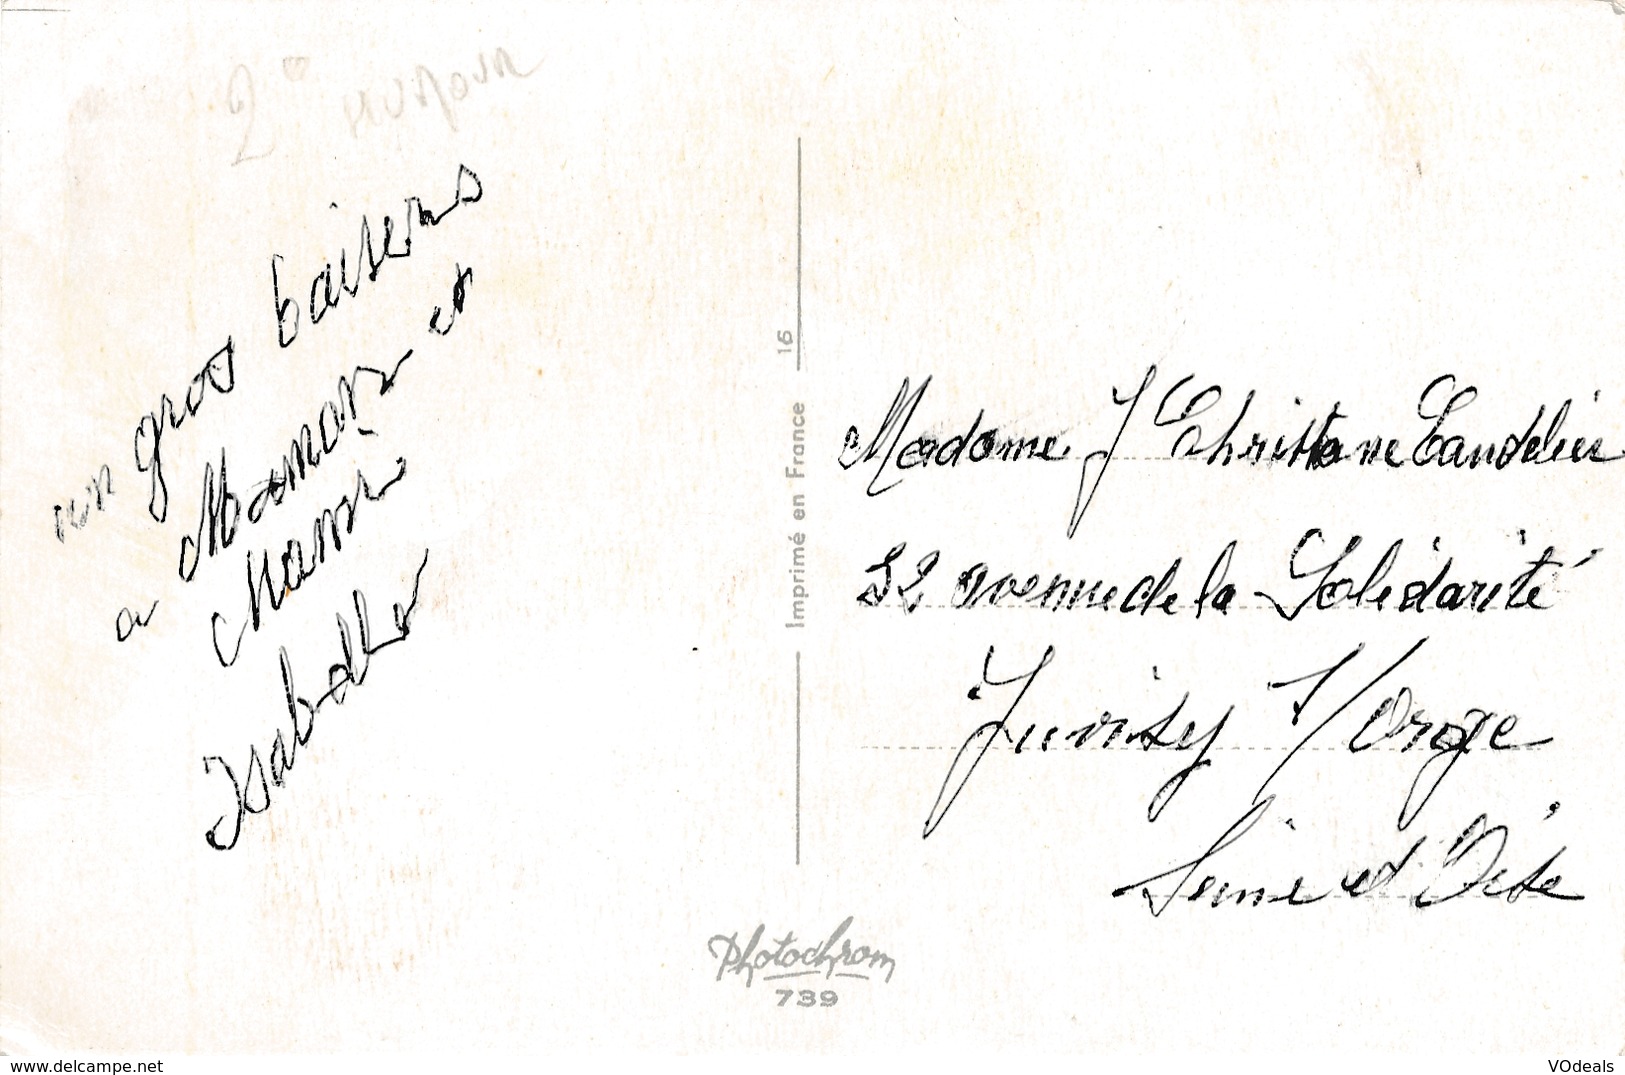 2
un gros baisers
a Maman et
Mami
Isabelle
Imprimé en France 16
Madame J Christiane Candelier
32 avenue de la Solidarité
Juvisy s/ Orge
Seine et Oise
Photochrom
739
www.delcampe.net
VOdeals